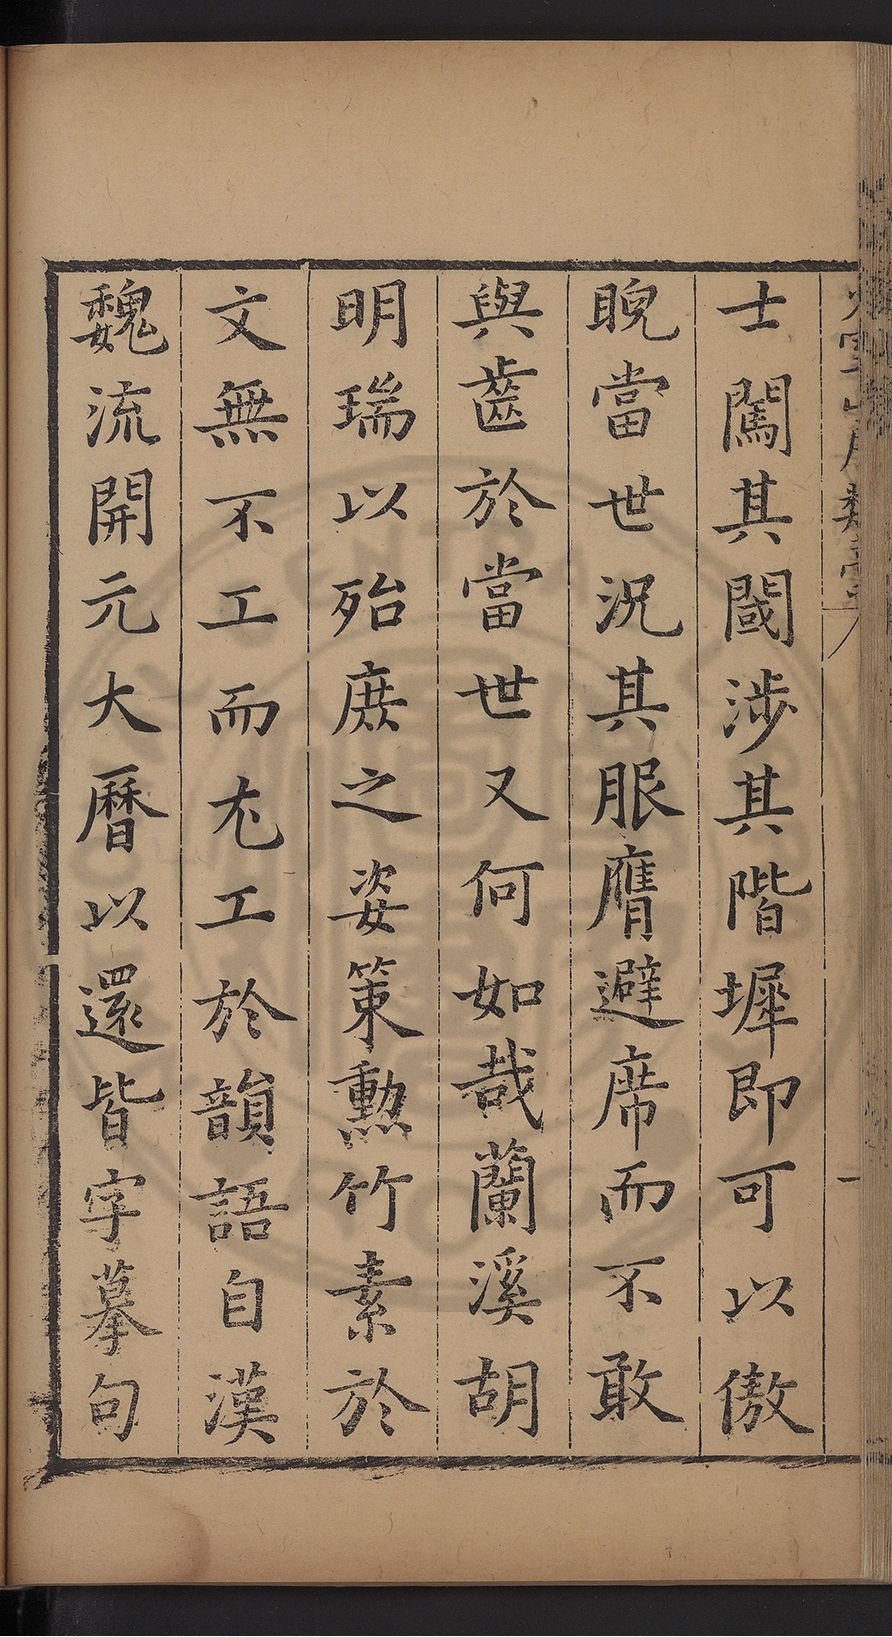 士闖其閾涉其階墀即可以傲
睨當世況其服膺避席而不敢
與齒於當世又何如哉蘭溪胡
明瑞以殆庶之姿策勲竹素於
文無不工而尤工於韻語自漢
魏流開元大曆以還皆字摹句